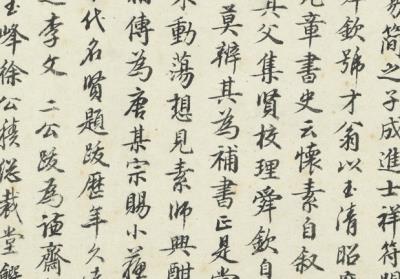 易簡之子成進士祥符
舜欽號才翁以玉清昭
元章書史云懷素自叙
其父集賢校理舜欽自
莫辨其為補書正是
動蕩想見素師興酣
傳為唐某宗賜小
代名賢題跋歷年久
李文二公跋為謐齋
玉峰徐公積總裁堂